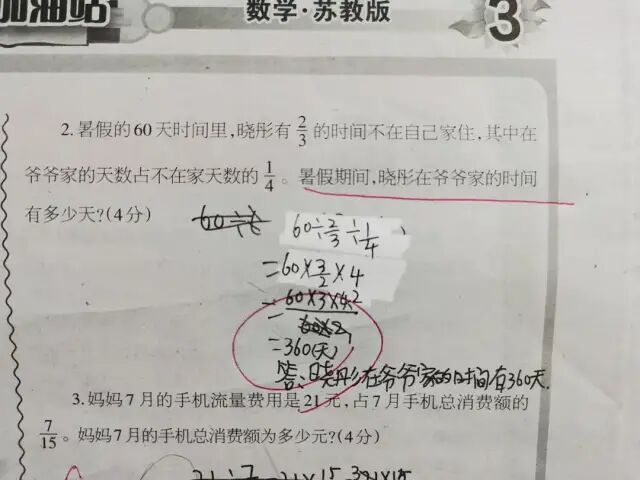 加油站
数学·苏教版
3
2.暑假的60天时间里,晓彤有2/3的时间不在自己家住,其中在
爷爷家的天数占不在家天数的1/4。暑假期间,晓彤在爷爷家的时间
有多少天?(4分)
60÷2/3÷1/4
=60×3/2×4
=60×3×4 2
=360(天)
答:晓彤在爷爷家的时间有360天.
3.妈妈7月的手机流量费用是21元,占7月手机总消费额的
7/15。妈妈7月的手机总消费额为多少元?(4分)